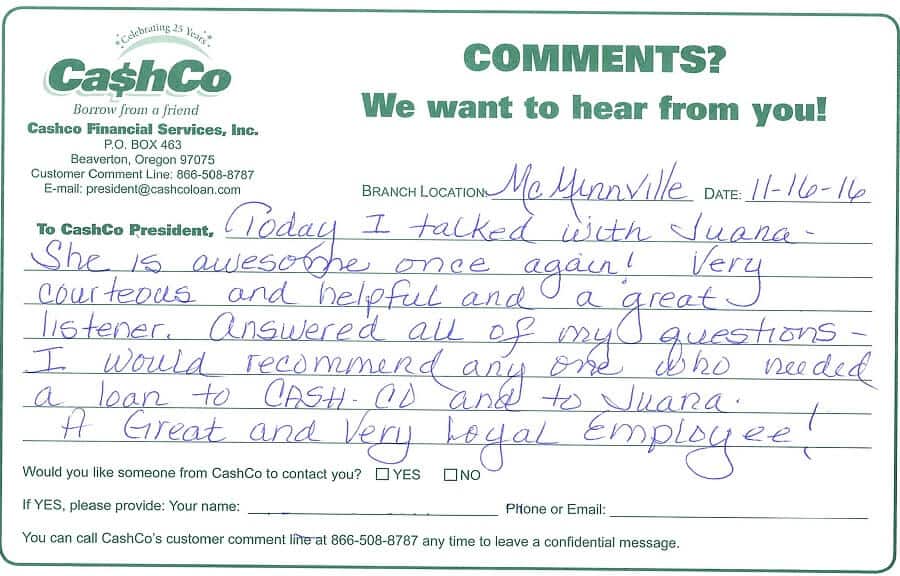 Celebrating 25 Years
Ca$hCo
Borrow from a friend
Cashco Financial Services, Inc.
P.O. BOX 463
Beaverton, Oregon 97075
Customer Comment Line: 866-508-8787
E-mail: president@cashcoloan.com
COMMENTS?
We want to hear from you!
BRANCH LOCATION: McMinnville DATE: 11-16-16
To CashCo President, Today I talked with Juana -
She is awesome once again! Very
courteous and helpful and a great
listener. Answered all of my questions -
I would recommend any one who needed
a loan to CASH-CO and to Juana.
A Great and Very Loyal Employee!
Would you like someone from CashCo to contact you? YES NO
If YES, please provide: Your name: Phone or Email:
You can call CashCo's customer comment line at 866-508-8787 any time to leave a confidential message.